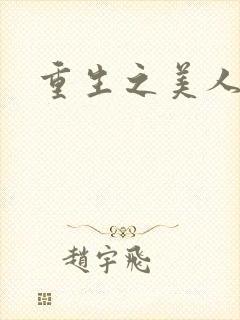 重生之美人
趙宇飛